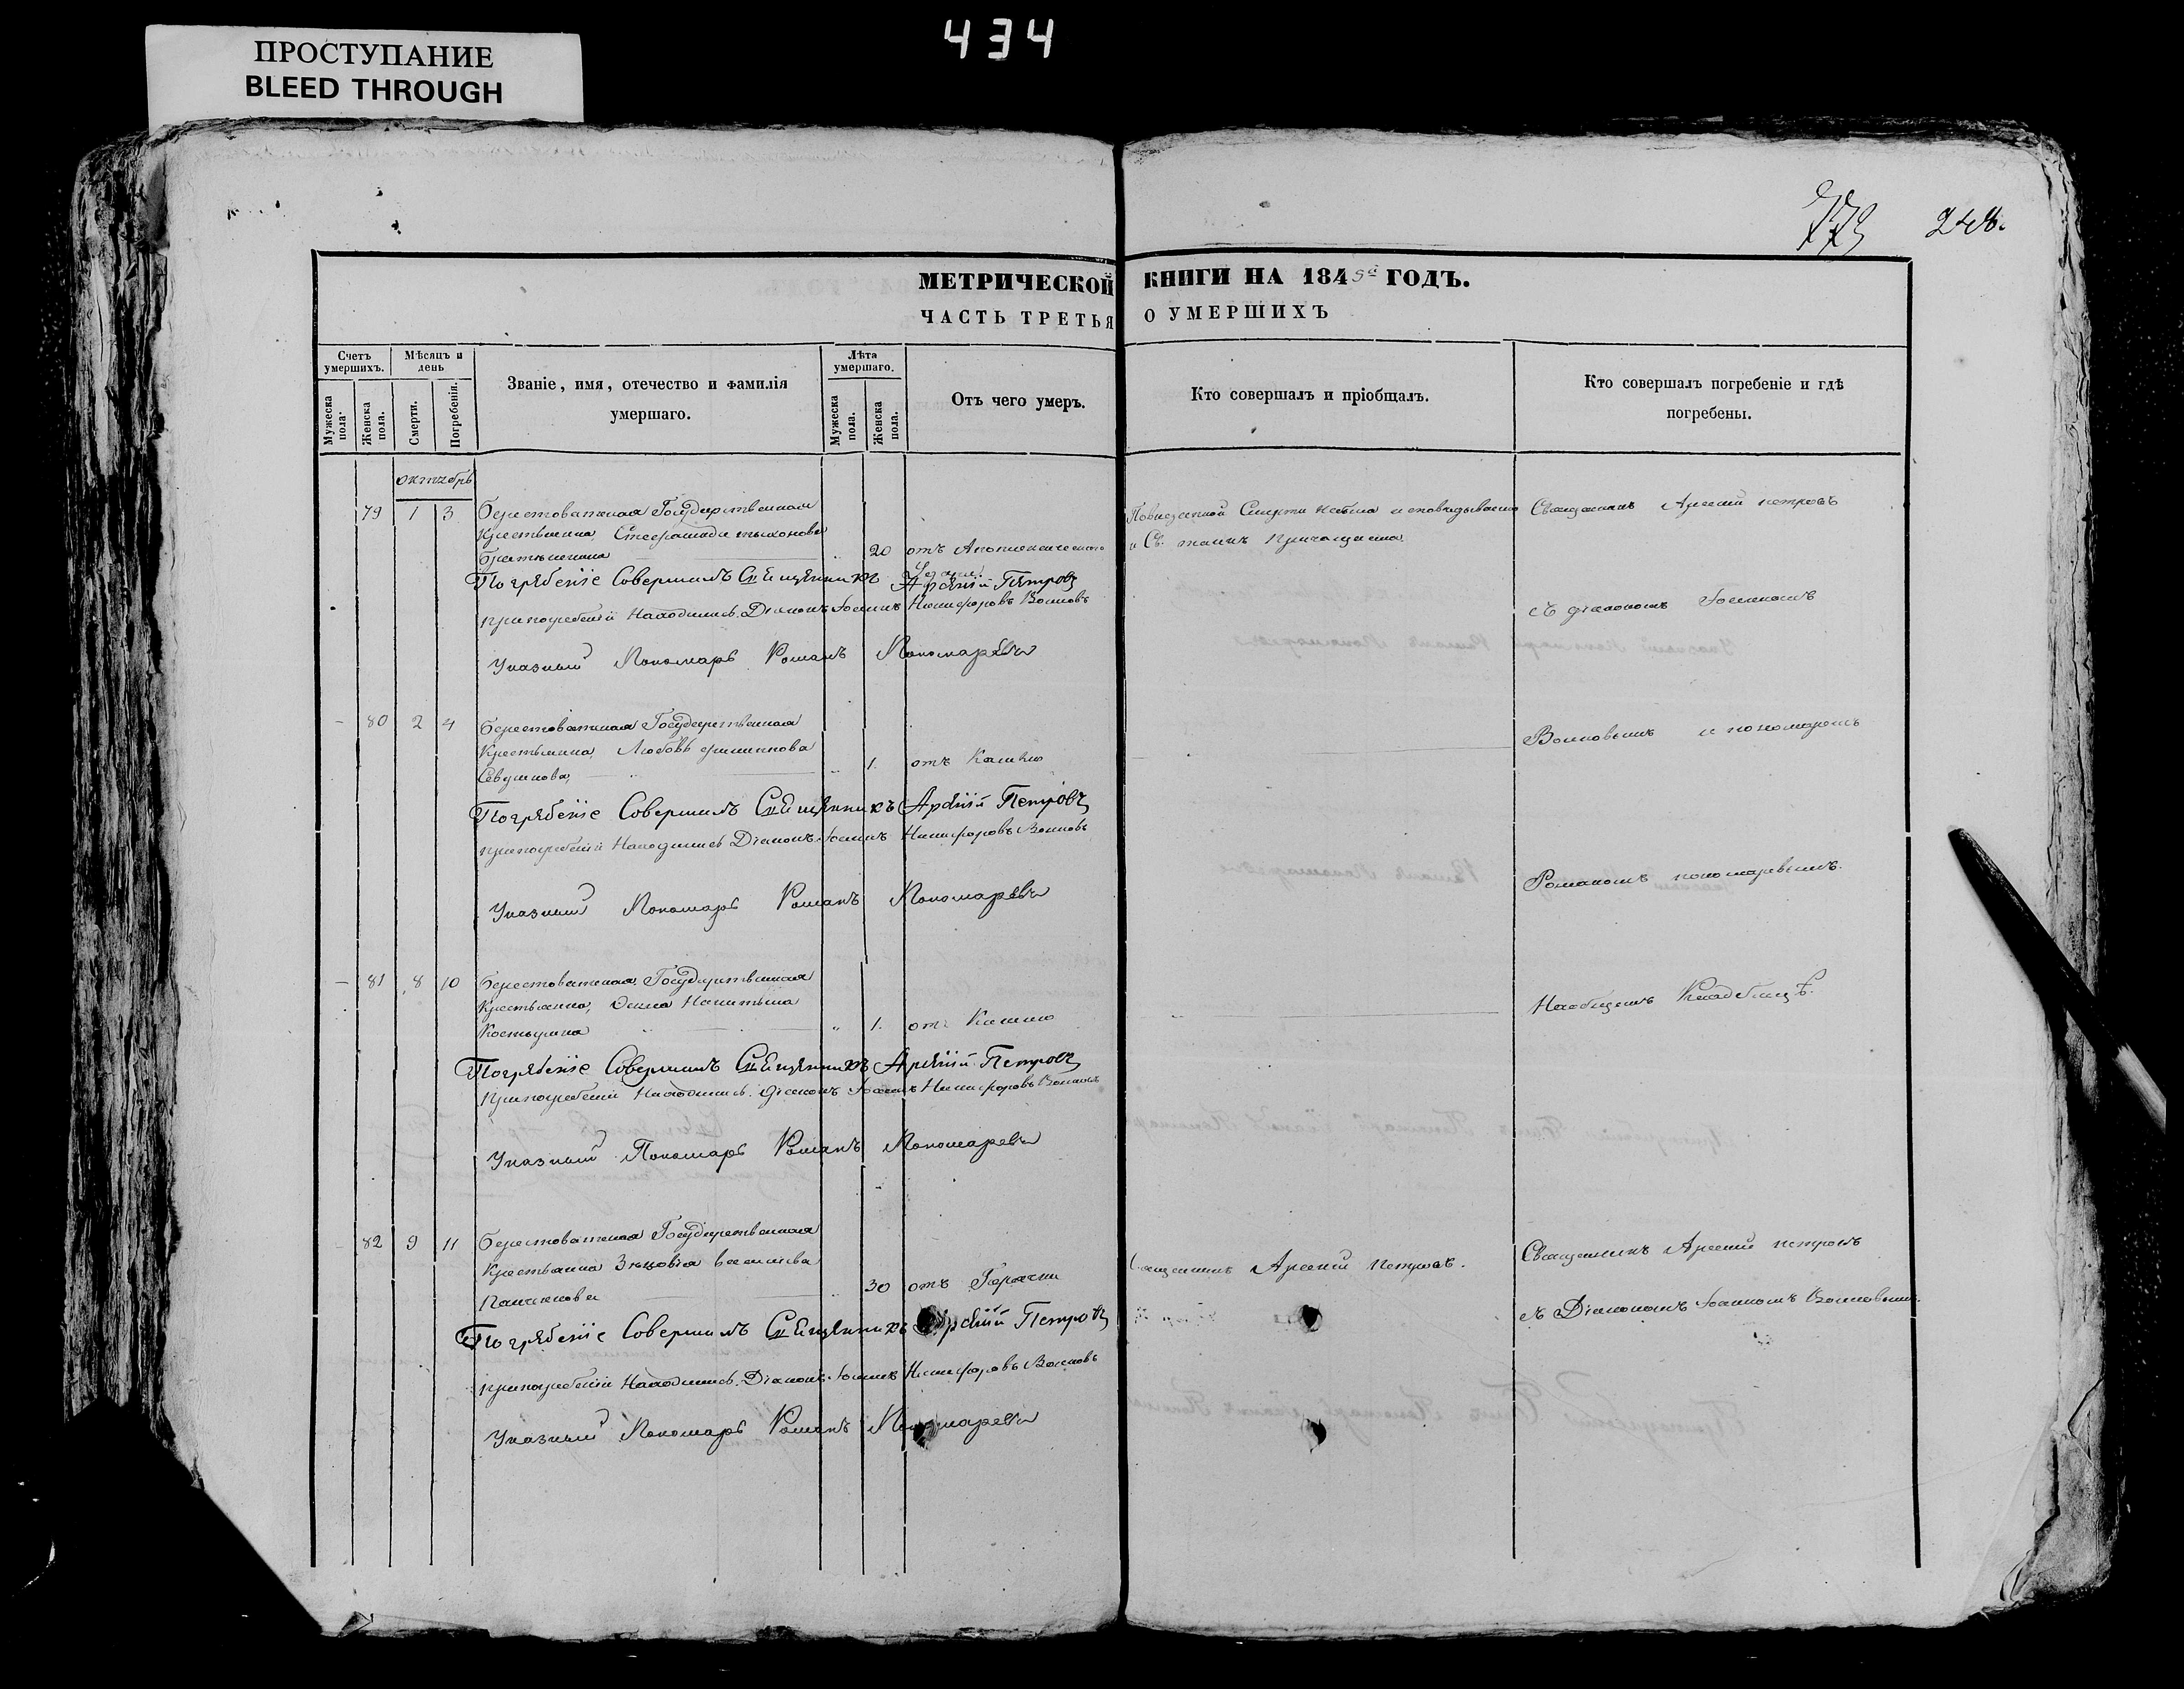 434
ПРОСТУПАНИЕ
BLEED THROUGH
773 248.
МЕТРИЧЕСКОЙ КНИГИ НА 1845й ГОДЪ.
ЧАСТЬ ТРЕТЬЯ О УМЕРШИХЪ
Счетъ умершихъ.
Мужеска пола.
Женска пола.
Мѣсяцъ и день
Смерти.
Погребенія.
Званіе, имя, отечество и фамилія умершаго.
Лѣта умершаго.
Мужеска пола.
Женска пола.
Отъ чего умеръ.
Кто совершалъ и пріобщалъ.
Кто совершалъ погребеніе и гдѣ погребены.
октябрь
79 1 3 берестоватская Государственная
Крестьянка, тихонова
20 отъ
и Св. таинъ
Священникъ Арсений петровъ
Погребеніе Совершилъ Священникъ Арсеній Петровъ
припогребеніи Находились Діаконъ Іоаннъ Никифоровъ Волковъ
съ діакономъ Іоанномъ
Указный Пономарь Романъ Пономаревъ
- 80 2 4 берестоватская Государственная
Крестьянка, Любовь филипова
1. отъ Кашлю
Волковымъ и пономаремъ
Погребеніе Совершилъ Священникъ Арсеній Петровъ
припогребеніи Находились Діаконъ Іоаннъ Никифоровъ Волковъ
Романомъ пономаревымъ.
Указный Пономарь Романъ Пономаревъ
- 81 8 10 берестоватская Государственная
Крестьянка, Никитина
1. отъ Кашлю
Наобщемъ Кладбищѣ.
Погребеніе Совершилъ Священникъ Арсеній Петровъ
припогребеніи Находились діаконъ Іоаннъ Никифоровъ Волковъ
Указный Пономарь Романъ Пономаревъ
- 82 9 11 берестоватская Государственная
Крестьянка Зиновія васильева
30 отъ Горячки
Священникъ Арсений петровъ.
Священникъ Арсений петровъ
Погребеніе Совершилъ Священникъ Арсеній Петровъ
съ Діакономъ Іоанномъ Волковымъ.
припогребеніи Находились Діаконъ Іоаннъ Никифоровъ Волковъ
Указный Пономарь Романъ Пономаревъ